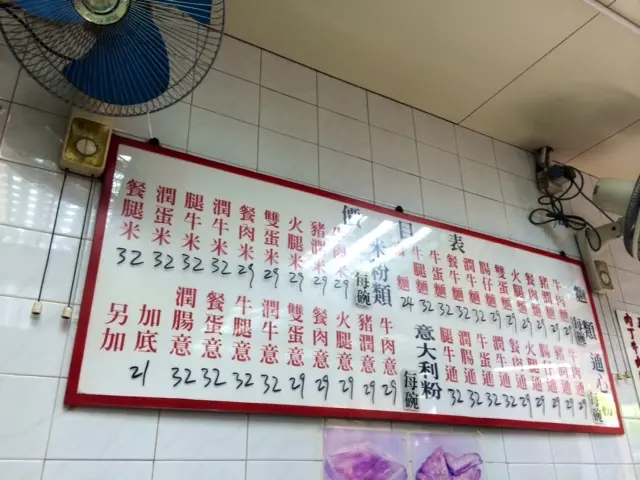 價目表
麵類
每碗
牛肉麵 29
豬潤麵 29
餐肉麵 29
火腿麵 29
雙蛋麵 29
腸仔麵 29
潤牛麵 32
餐牛麵 32
牛蛋麵 32
牛腿麵 32
麵 24
通心粉
每碗
牛肉通 29
豬潤通 29
腸仔通 29
餐肉通 29
火腿通 29
通 32
牛蛋通 32
通 32
腿牛通 32
米粉類
每碗
牛肉米 29
豬潤米 29
火腿米 29
雙蛋米 29
餐肉米 29
潤牛米 32
腿牛米 32
潤蛋米 32
餐腿米 32
意大利粉
每碗
牛肉意 29
豬潤意 29
火腿意 29
餐肉意 29
雙蛋意 29
潤牛意 32
牛腿意 32
餐蛋意 32
潤腸意 32
加底 21
另加